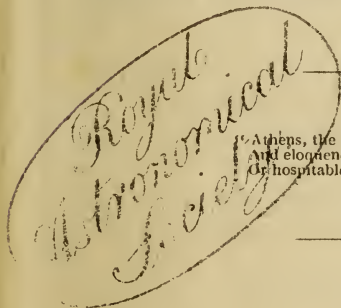 Royal
Astronomical
Society
Athens, the
And eloquen
Or hospitable